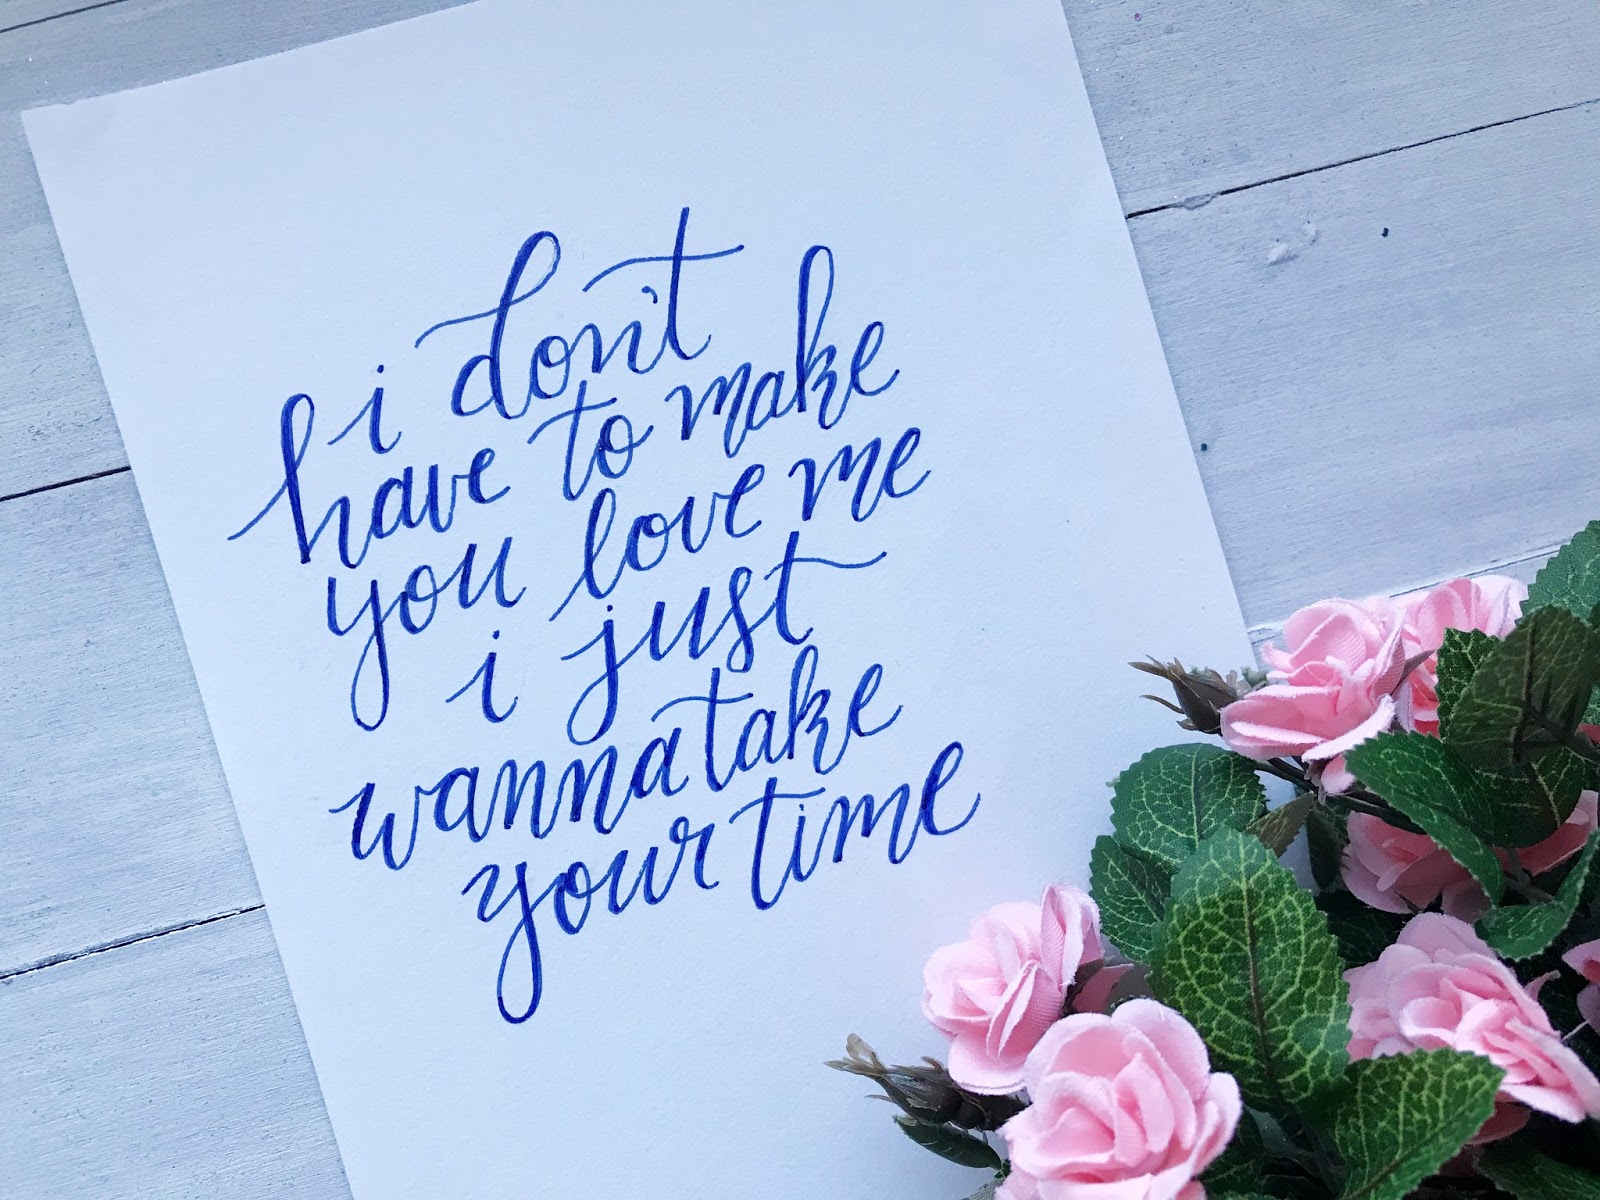 i don't
have to make
you love me
i just
wanna take
your time